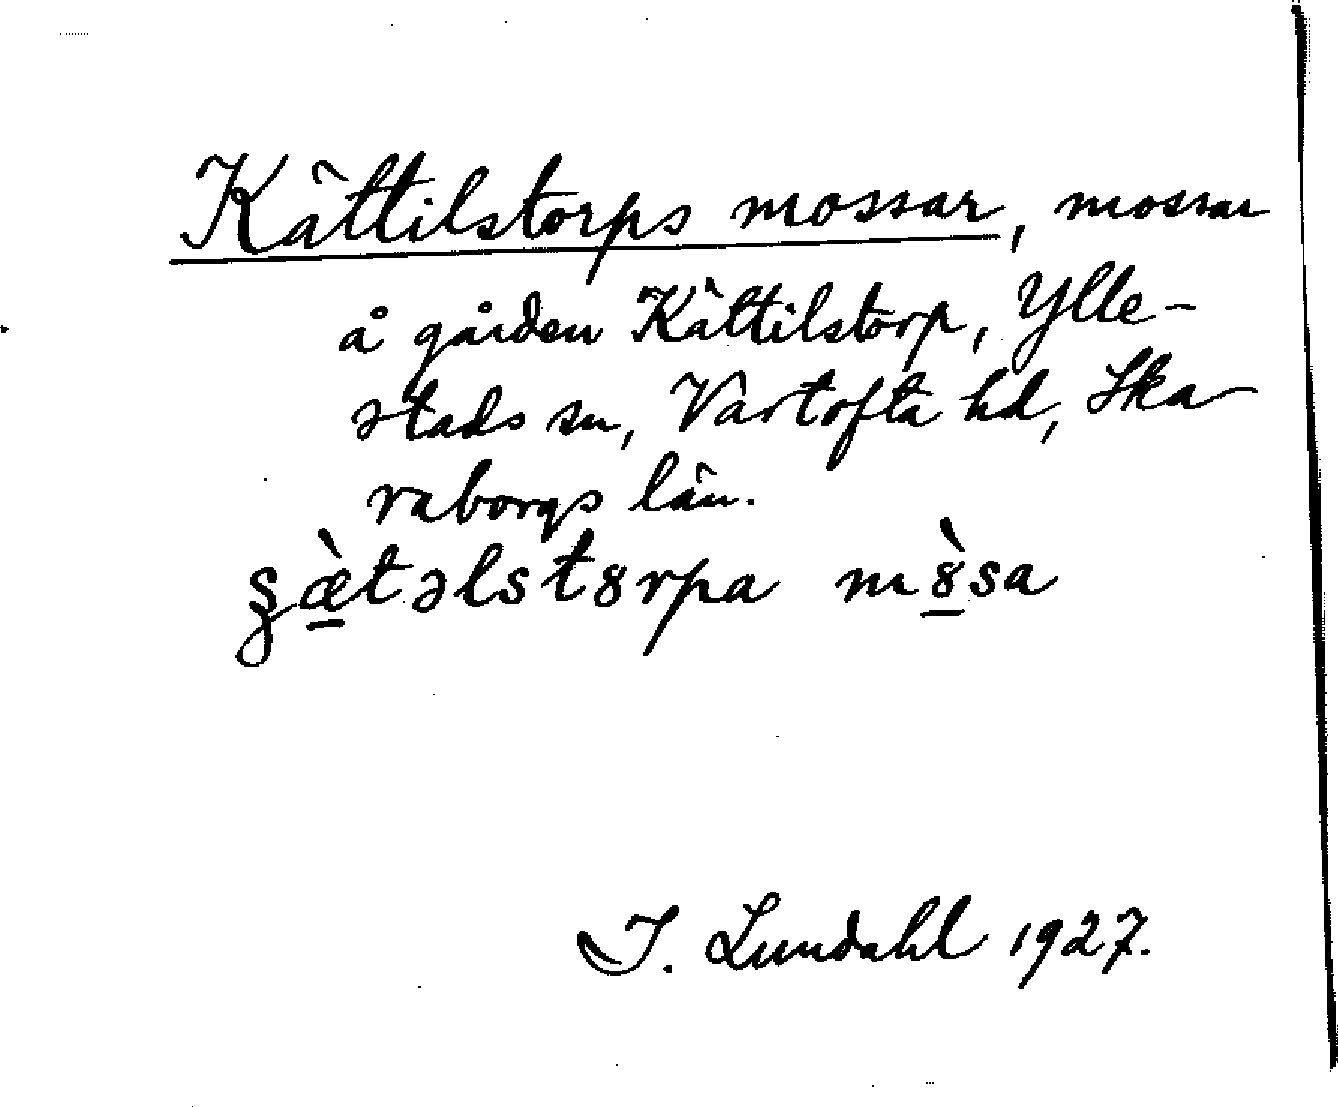 Kättilstorps mossar, mossar
å gården Kättilstorp, Ylle-
stads sn, Vartofta hd, Ska-
raborgs län.
ʂæ̠̀təlstɞrpa mɞ̠̀sa
I. Lundahl 1927.